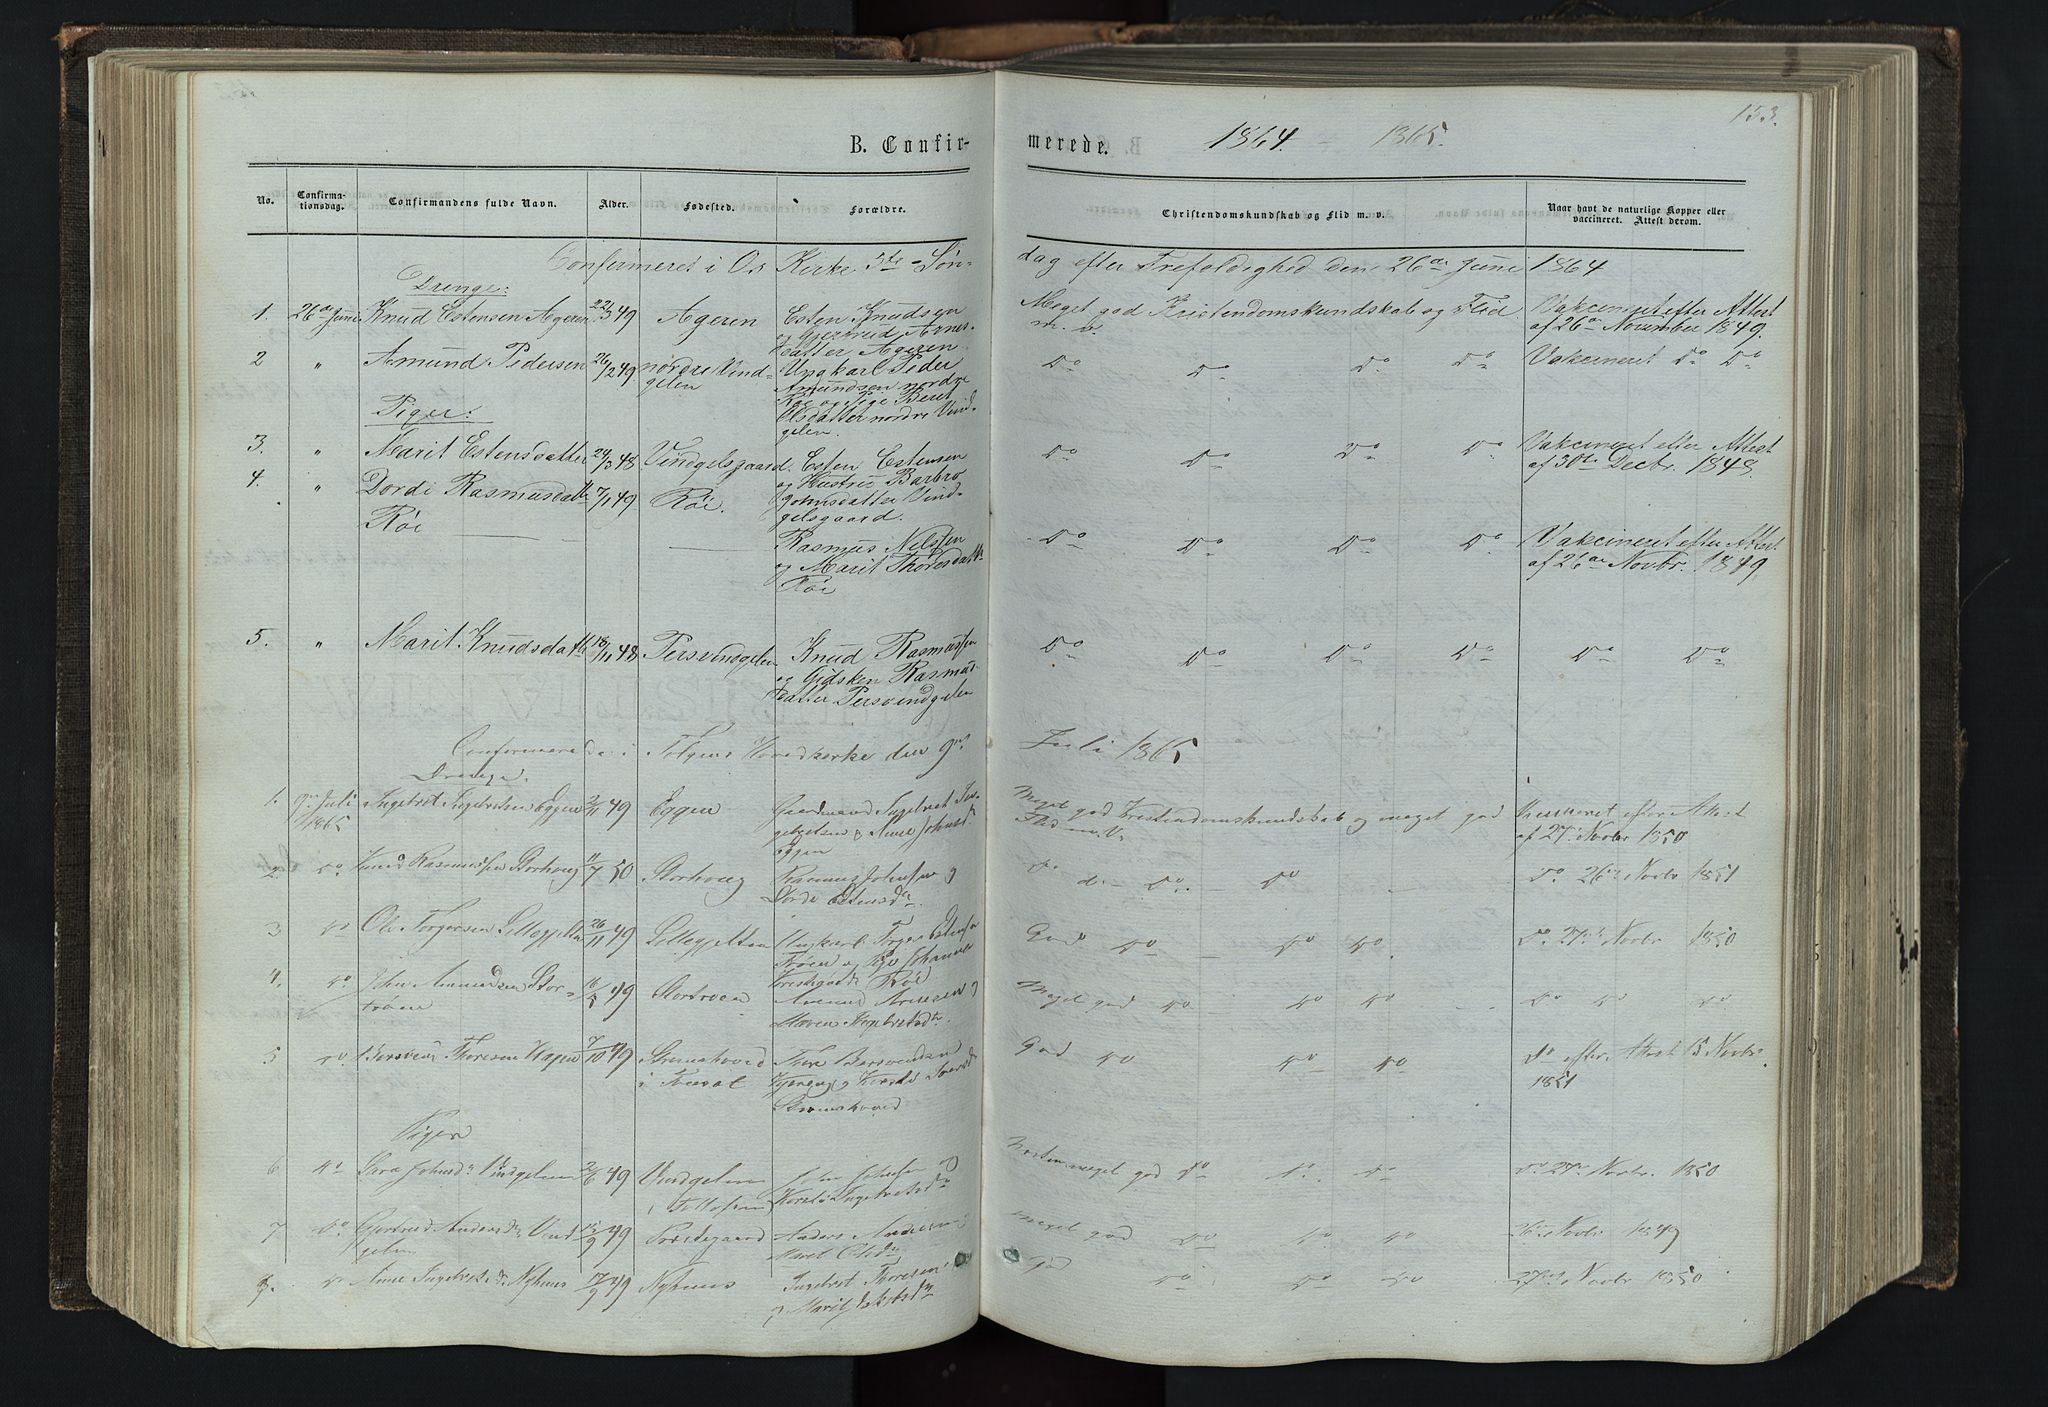 153.
B. Confir-
merede. 1864 - 1865.
No.
Confirma-
tionsdag.
Confirmandens fulde Navn.
Alder.
Fødested.
Forældre.
Christendomskundskab og Flid m. v.
Naar havt de naturlige Kopper eller
vaccineret. Attest derom.
Confirmeret i Os Kirke 5te Søn-
dag efter Trefoldighed den 26de Juni 1864
Drenge:
1. 26de Juni Knud Estensen Ageren 22/3 49 Ageren Esten Knudsen
og Gjertrud Arnes-
datter Ageren
Meget god Kristendomskundskab og Flid
m. v.
Vakcineret efter Attest
af 26de November 1849.
2 " Amund Pedersen 26/2 49 nordre Vind-
gelen
Ungkarl Peder
Amundsen nordre
Røe og Pige Beret
Olsdatter nordre Vind-
gelen.
Do Do Do Do Vakcineret Do Do
Piger:
3. " Marit Estensdatter 29/3 48 Vindgelsgaard. Esten Estensen
og Hustru Barbro
Jonnsdatter Vind-
gelsgaard.
Do Do Do Do Vakcineret efter Attest
af 30te Decbr. 1848.
4 " Dordi Rasmusdatter 7/1 49 Røe.
Røe
Rasmus Nilssen
og Marit Thoresdatter
Røe
Do Do Do Do Vakcineret efter Attest
af 26de Novbr. 1849.
5. " Marit Knudsdatter 18/11 48 Persvindgelen Knud Rasmussen
og Gidsken Rasmus-
datter Persvindgelen
Do Do Do Do Do Do
Confirmerede i Tolgens Hovedkirke den 9de
Juli 1865
Drenge.
1. 9de Juli
1865
Ingebret Ingebretsen Eggen 2/11 49 Eggen Gaardmand Ingebret In-
gebretsen & Anne Johnsd.
Eggen
Meget god Kristendomskundskab og meget god
Flid m. V.
Vaccineret efter Attest
af 27de Novbr 1850
2. Do Knud Rasmussen Storhoug 11/7 50 Storhoug Rasmus Johnsen &
Dordi Estensdr.
Do Do Do Do 26de Novbr 1851
3 Do Ole Torgersen Lillegjelten 26/11 49 Lillegjelten Ungkarl Torger Estensen
Trøen
God Do Do Do Do 27de Novbr 1850
4. Do John Amundsen Stor-
trøen
49 Stortrøen Amund Arnesen &
Maren Ingebretsdr.
Meget god Do Do Do Do Do Do
5 Do Bersvend Thoresen Hagen 7/10 49 Strømshoved
Thore Bersvendsen
Strømshoved
God Do Do Do Do efter Attest 15 Novbr.
1851
Piger
6 Do Sara Johnsdr Vindgelen 2/6 49 Vindgelen
John Johnsen &
Kirsti Ingebretsdr
Næsten meget god Do Do Do Do 27de Novbr. 1850
7 Do Gjertrud Andersdr Vind-
gelen
15/9 49 Præstegaard Anders Andersen
Marit Olsdr
Meget god Do Do Do 26de Novbr 1849
8. Do Anne Ingebretsdr Nyhuus 17/9 49 Nyhuus Ingebret Thoresen
& Marit
God Do Do Do 27de Novbr 1850